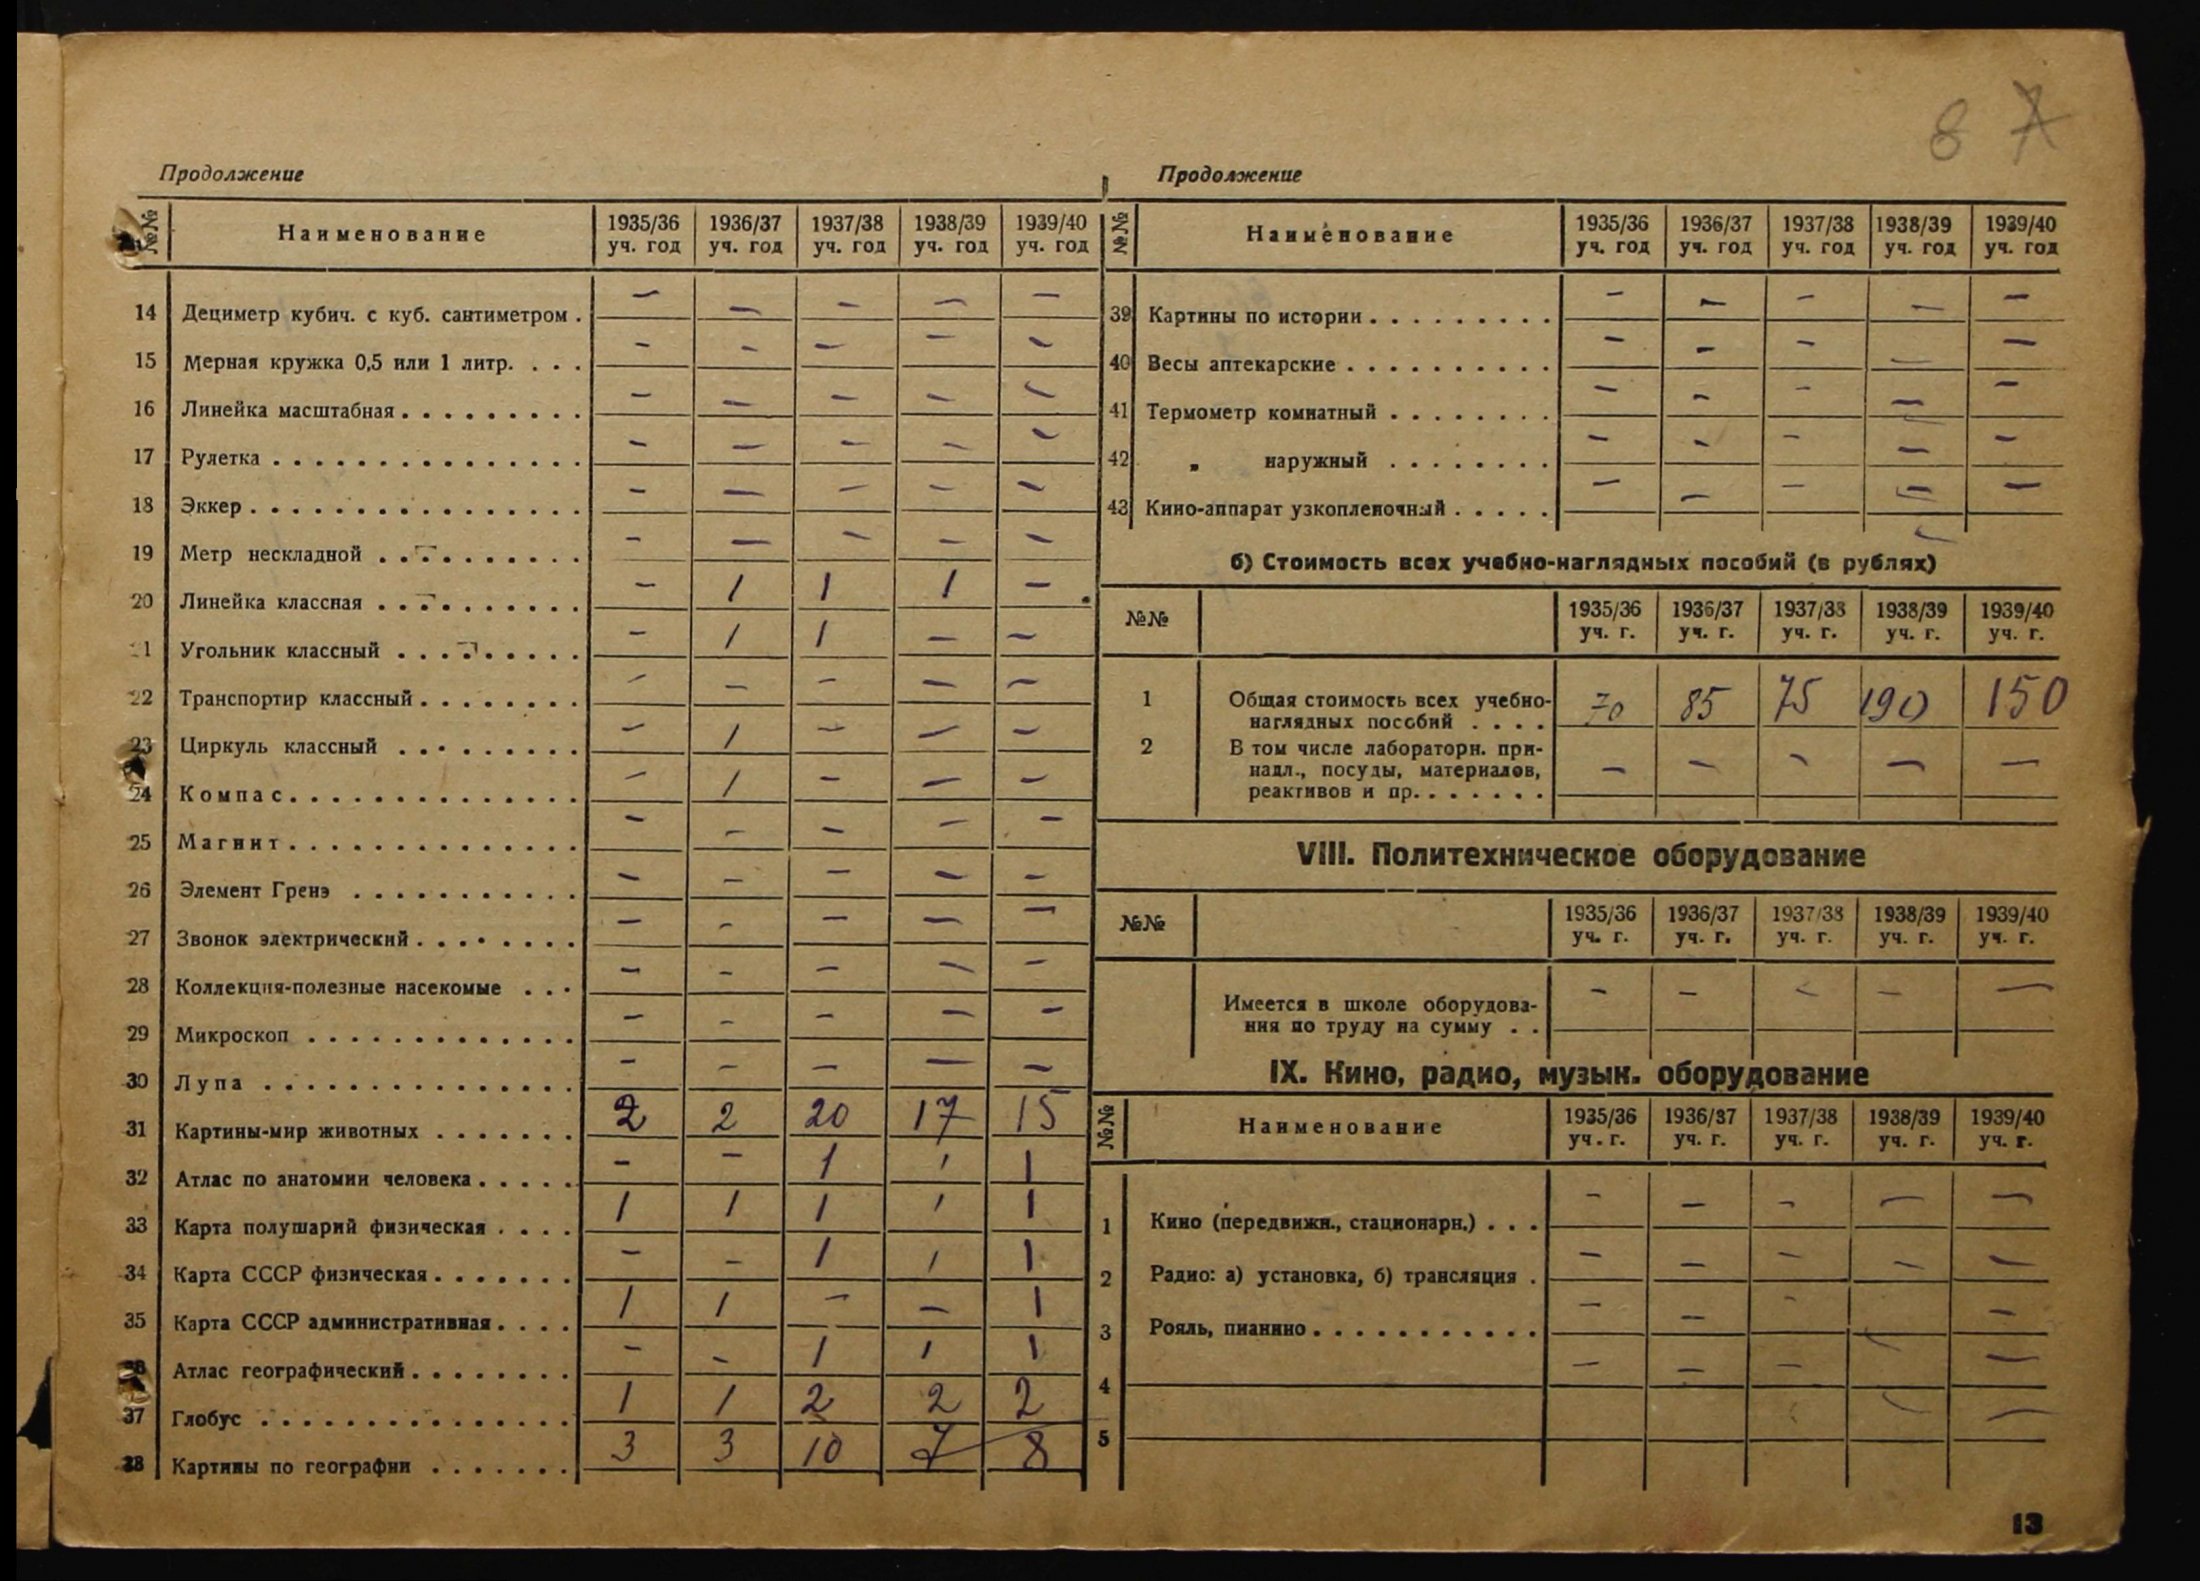 8 7
Продолжение
№№ Наименование 1935/36 уч. год 1936/37 уч. год 1937/38 уч. год 1938/39 уч. год 1939/40 уч. год
14 Дециметр кубич. с куб. сантиметром . — — — — —
15 Мерная кружка 0,5 или 1 литр. . . . — — — — —
16 Линейка масштабная . . . . . . . . . — — — — —
17 Рулетка . . . . . . . . . . . . . . . — — — — —
18 Эккер . . . . . . . . . . . . . . . . — — — — —
19 Метр нескладной . . . . . . . . . . — — — — —
20 Линейка классная . . . . . . . . . . — 1 1 1 —
21 Угольник классный . . . . . . . . . — 1 1 — —
22 Транспортир классный . . . . . . . . — — — — —
23 Циркуль классный . . . . . . . . . — 1 — — —
24 Компас . . . . . . . . . . . . . . — 1 — — —
25 Магнит . . . . . . . . . . . . . . — — — — —
26 Элемент Гренэ . . . . . . . . . . . — — — — —
27 Звонок электрический . . . . . . . . — — — — —
28 Коллекция-полезные насекомые . . . — — — — —
29 Микроскоп . . . . . . . . . . . . . — — — — —
30 Лупа . . . . . . . . . . . . . . . — — — — —
31 Картины-мир животных . . . . . . . 2 2 20 17 15
32 Атлас по анатомии человека . . . . . — — 1 1 1
33 Карта полушарий физическая . . . . 1 1 1 1 1
34 Карта СССР физическая . . . . . . . — — 1 1 1
35 Карта СССР административная . . . . 1 1 — — 1
36 Атлас географический . . . . . . . . — — 1 1 1
37 Глобус . . . . . . . . . . . . . . . 1 1 2 2 2
38 Картины по географии . . . . . . . 3 3 10 7 8
Продолжение
№№ Наименование 1935/36 уч. год 1936/37 уч. год 1937/38 уч. год 1938/39 уч. год 1939/40 уч. год
39 Картины по истории . . . . . . . . . — — — — —
40 Весы аптекарские . . . . . . . . . . — — — — —
41 Термометр комнатный . . . . . . . . — — — — —
42 „ наружный . . . . . . . . — — — — —
43 Кино-аппарат узкопленочный . . . . . — — — — —
б) Стоимость всех учебно-наглядных пособий (в рублях)
№№ 1935/36 уч. г. 1936/37 уч. г. 1937/38 уч. г. 1938/39 уч. г. 1939/40 уч. г.
1 Общая стоимость всех учебно-
наглядных пособий . . . . 70 85 75 190 150
2 В том числе лабораторн. при-
надл., посуды, материалов,
реактивов и пр. . . . . . . — — — — —
VIII. Политехническое оборудование
№№ 1935/36 уч. г. 1936/37 уч. г. 1937/38 уч. г. 1938/39 уч. г. 1939/40 уч. г.
Имеется в школе оборудова-
ния по труду на сумму . . — — — — —
IX. Кино, радио, музык. оборудование
№№ Наименование 1935/36 уч. г. 1936/37 уч. г. 1937/38 уч. г. 1938/39 уч. г. 1939/40 уч. г.
1 Кино (передвижн., стационарн.) . . . — — — — —
2 Радио: а) установка, б) трансляция . — — — — —
3 Рояль, пианино . . . . . . . . . . . — — — — —
4 — — — — —
5
13